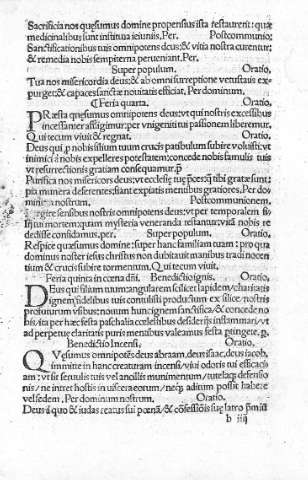 Sacrificia nos quesumus domine propensius ista restaurent: que
medicinalibus sunt instituta ieiuniis, Per. Postcommunio:
Sanctificationibus tuis omnipotens deus: & vitia nostra curentur:
& remedia nobis sempiterna perueniant. Per.
Super populum. Oratio.
Tua nos misericordia deus: & ab omni surreptione vetustatis expurget:
& capaces sancte nouitatis efficiat, Per dominum.
¶ Feria quarta. Oratio.
PRæsta quesumus omnipotens deus: vt qui nostris excessibus
incessanter affligimur: per vnigeniti tui passionem liberemur,
Qui tecum viuit & regnat. Oratio.
Deus qui pro nobis filium tuum crucis patibulum subire voluisti: vt
inimici a nobis expelleres potestatem: concede nobis famulis tuis
vt resurrectionis gratiam consequamur.
Purifica nos misericors deus: vt ecclesie tue preces que tibi grate sunt:
pia munera deferentes: fiant expiatis mentibus gratiores, Per dominum
nostrum. Postcommunionem.
Largire sensibus nostris omnipotens deus: vt per temporalem filii
tui mortem: quam mysteria veneranda testantur: vitam nobis
dedisse confidamus, per. Super populum. Oratio.
Respice quesumus domine: super hanc familiam tuam: pro qua
dominus noster iesus christus non dubitauit manibus tradi nocentium
& crucis subire tormentum, Qui tecum viuit.
Feria quinta in cena domini. Benedictio ignis. Oratio.
DEus qui filium tuum: angularem scilicet lapidem: charitatis
ignem fidelibus tuis contulisti productum ex silice: nostris
profuturum vsibus: nouum hunc ignem sanctifica: & concede nobis:
ita per hec festa paschalia celestibus desideriis inflammari: vt
ad perpetue claritatis puris mentibus valeamus festa pertingere.
Benedictio Incensi, Oratio.
QVesumus omnipotens deus abraam, deus isaac, deus iacob,
immitte in hanc creaturam incensi/ vim odoris tui efficaciam:
vt sit seruulis tuis vel ancillis munimentum/ tutelaque defensionis/
ne intret hostis in viscera eorum/ neque aditum possit habere
vel sedem, Per dominum nostrum, Oratio.
Deus a quo & iudas reatus sui penam: & confessionis sue latro premium
b iiij